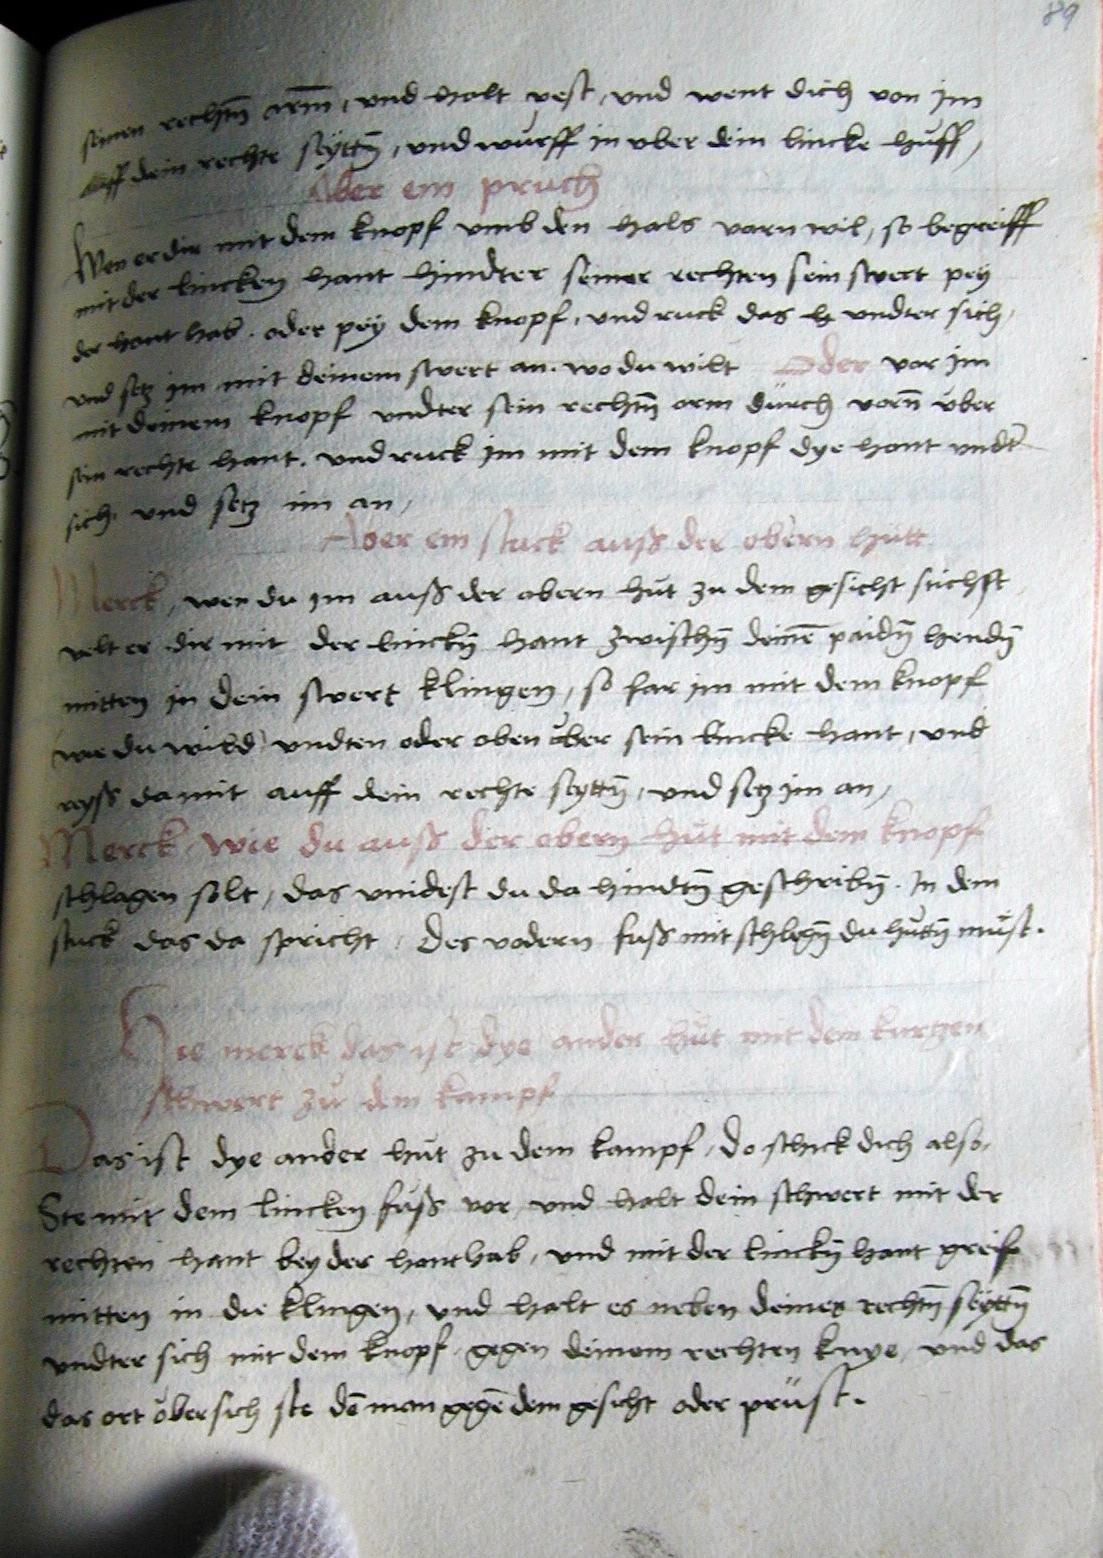 89
seinen rechtñ arm̄, und halt vest, und went dich von im
auff dein rechte seyttñ, und wurff in vber dein lincke huff,
Aber ein pruch
Wen er dir mit dem knopf vmb den hals varn wil, so begreiff
mit der lincken hant hindter seiner rechten sein swert pey
der hant hab. oder pey dem knopf, und ruck das h vndter sich,
und setz im mit deinem swert an. wo du wilt Oder var im
mit deinem knopf vndter sein rechtñ arm durch vorñ vber
sein rechte hant. und ruck im mit dem knopf dye hant vndt
sich und setz im an,
Aber ein stuck auß der obern hutt
Merck, wen du im auß der obern hut zu dem gesicht stichst
velt er dir mit der linckñ hant zwischñ deinē paidñ hendñ
mitten in dein swert klingen, so far im mit dem knopf
wie du wild vndten oder oben vber sein lincke hant, und
reyss da mit auff dein rechte seyttñ, und setz im an,
Merck wie du auß der obern hut mit dem knopf
schlagen solt, das vindest du da hindtñ geschribñ. In dem
stuck das da spricht, Des vodern fuß mit schlegñ du huttñ müst.
Hie merck das ist dye ander hut mit dem kurtzen
schwert zu dem kampf
Das ist dye ander hut zu dem kampf, do schick dich also,
Ste mit dem lincken fuß vor, und halt dein schwert mit der
rechten hant bey der hanthab, und mit der linckñ hant greif
mitten in die klingen, und halt es neben deiner rechtñ seyttñ
vndter sich mit dem knopf gegen deinem rechten knye, und das
das ort vbersich ste dē man gegē dem gesicht oder prüst.